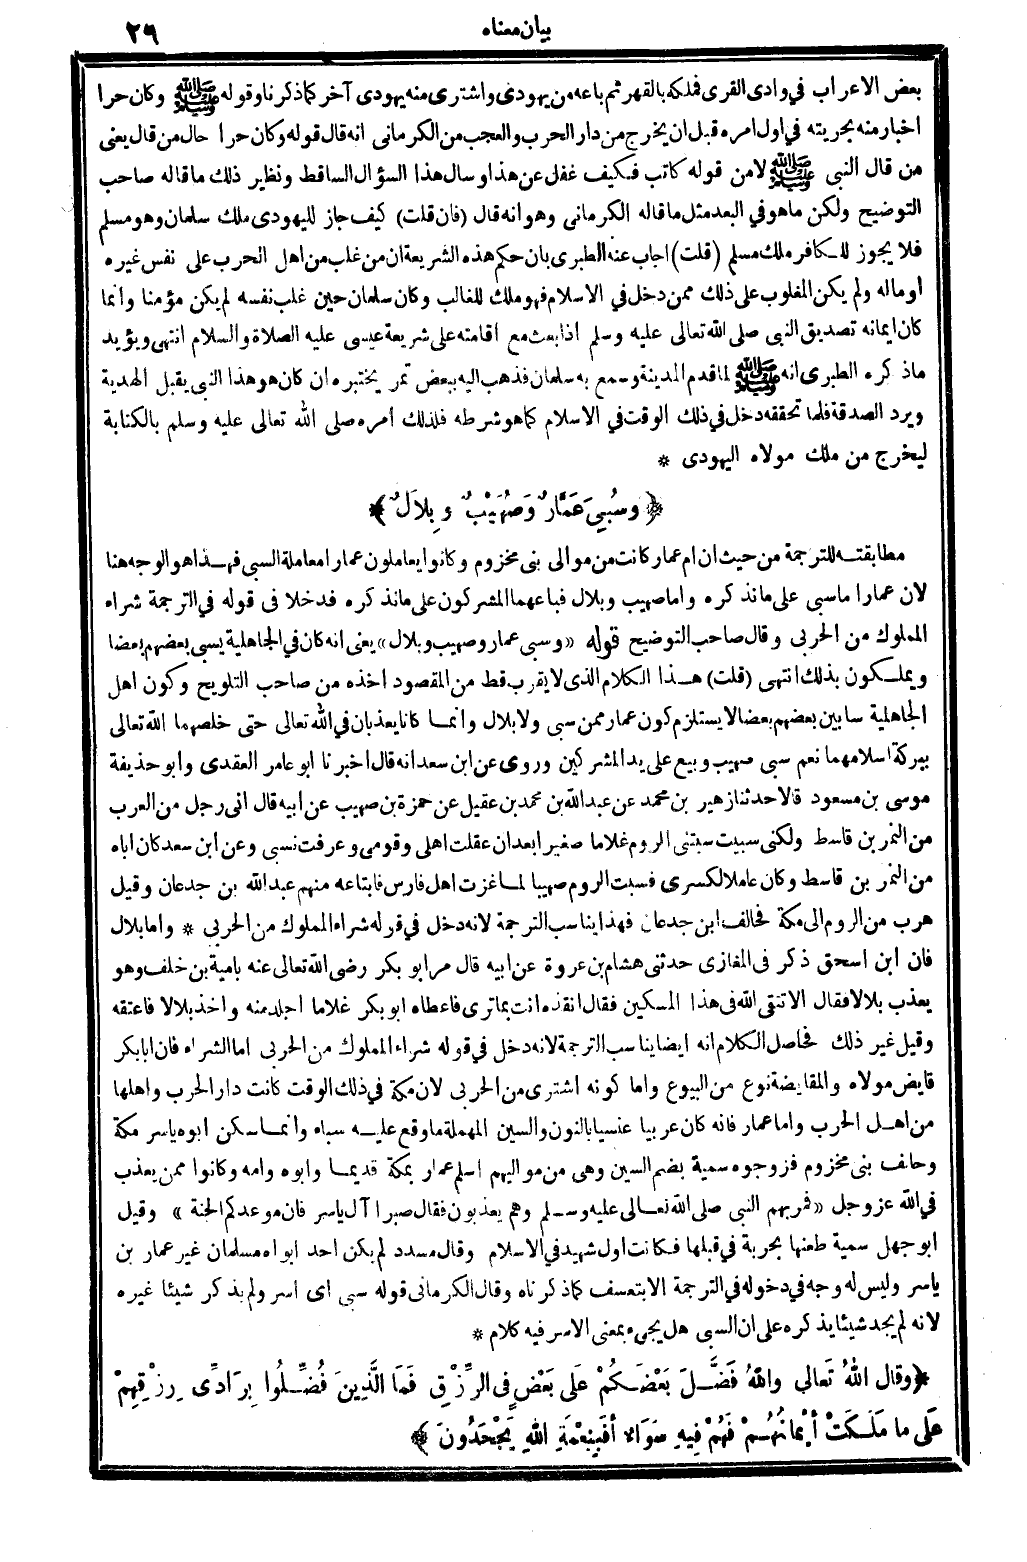 بيان معناه
٢٩
بعض الاعراب في وادى القرى فملكه بالقهر ثم باعه من يهودى واشترى منه يهودى آخر كما ذكرنا وقوله ﷺ وكان حرا
اخبار منه بحريته في اول امره قبل ان يخرج من دار الحرب والعجب من الكرمانى انه قال قوله وكان حرا حال من قال يعنى
من قال النبى ﷺ لا من قوله كاتب فكيف غفل عن هذا وسال هذا السؤال الساقط ونظير ذلك ما قاله صاحب
التوضيح ولكن ما هو في البعد مثل ما قاله الكرمانى وهو انه قال (فان قلت) كيف جاز لليهودى ملك سلمان وهو مسلم
فلا يجوز للكافر ملك مسلم (قلت) اجاب عنه الطبرى بان حكم هذه الشريعة ان من غلب من اهل الحرب على نفس غيره
او ماله ولم يكن المغلوب على ذلك ممن دخل في الاسلام فهو ملك للغالب وكان سلمان حين غلب نفسه لم يكن مؤمنا وانما
كان ايمانه تصديق النبى صلى الله تعالى عليه وسلم اذا بعث مع اقامته على شريعة عيسى عليه الصلاة والسلام انتهى ويؤيد
ماذكره الطبرى انه ﷺ لما قدم المدينة وسمع به سلمان فذهب اليه ببعض تمر يختبره ان كان هو هذا النبى يقبل الهدية
ويرد الصدقة فلما تحققه دخل في ذلك الوقت في الاسلام كما هو شرطه فلذلك أمره صلى الله تعالى عليه وسلم بالكتابة
ليخرج من ملك مولاه اليهودى *
﴿ وَسُبِيَ عَمَّارٌ وَصُهَيْبٌ وَبِلاَلٌ ﴾
مطابقته للترجمة من حيث ان ام عمار كانت من موالى بنى مخزوم وكانوا يعاملون عمارا معاملة السبى فهذا هو الوجه هنا
لان عمارا ماسبى على مانذكره واما صهيب وبلال فباعهما المشركون على مانذكره فدخلا فى قوله في الترجمة شراء
المملوك من الحربى وقال صاحب التوضيح قوله «وسبى عمار وصهيب وبلال» يعنى انه كان في الجاهلية يسبى بعضهم بعضا
ويملكون بذلك انتهى (قلت) هذا الكلام الذى لا يقرب قط من المقصود اخذه من صاحب التلويح وكون اهل
الجاهلية سابين بعضهم بعضا لا يستلزم كون عمار ممن سبى ولا بلال وانما كانا يعذبان في الله تعالى حتى خلصهما الله تعالى
ببركة اسلامهما نعم سبى صهيب وبيع على يد المشركين وروى عن ابن سعد انه قال اخبرنا ابو عامر العقدى وابو حذيفة
موسى بن مسعود قالا حدثنا زهير بن محمد عن عبدالله بن محمد بن عقيل عن حمزة بن صهيب عن ابيه قال انى رجل من العرب
من النمر بن قاسط ولكنى سبيت سبتنى الروم غلاما صغيرا بعد ان عقلت اهلى وقومى وعرفت نسبى وعن ابن سعد كان اباه
من النمر بن قاسط وكان عاملا لكسرى فسبت الروم صهيبا لما غزت اهل فارس فابتاعه منهم عبد الله بن جدعان وقيل
هرب من الروم الى مكة فحالف ابن جدعان فهذا يناسب الترجمة لانه دخل في قوله شراء المملوك من الحربى * واما بلال
فان ابن اسحق ذكر فى المغازى حدثنى هشام بن عروة عن ابيه قال مر ابو بكر رضى الله تعالى عنه بامية بن خلف وهو
يعذب بلالا فقال الا تتقى الله في هذا المسكين فقال انقذه انت بما ترى فاعطاه ابو بكر غلاما اجلد منه واخذ بلالا فاعتقه
وقيل غير ذلك فحاصل الكلام انه ايضا يناسب الترجمة لانه دخل في قوله شراء المملوك من الحربى اما الشراء فان ابا بكر
قايض مولاه والمقايضة نوع من البيوع واما كونه اشترى من الحربى لان مكة في ذلك الوقت كانت دار الحرب واهلها
من اهل الحرب واما عمار فانه كان عربيا عنسيا بالنون والسين المهملة ماوقع عليه سباء وانما سكن ابوه ياسر مكة
وحالف بنى مخزوم فزوجوه سمية بضم السين وهى من مواليهم اسلم عمار بمكة قديما وابوه وامه وكانوا ممن يعذب
في الله عز وجل «فمر بهم النبى صلى الله تعالى عليه وسلم وهم يعذبون فقال صبرا آل ياسر فان موعدكم الجنة» وقيل
ابو جهل سمية طعنها بحربة في قبلها فكانت اول شهيد في الاسلام وقال مسدد لم يكن احد ابواه مسلمان غير عمار بن
ياسر وليس له وجه في دخوله في الترجمة الا بتعسف كما ذكرناه وقال الكرمانى قوله سبى اى اسر ولم يذكر شيئا غيره
لانه لم يجد شيئا يذكره على ان السبى هل يجىء بمعنى الاسر فيه كلام *
﴿ وقال اللهُ تَعالى واللهُ فَضَّلَ بَعْضَكُمْ عَلَى بَعْضٍ فِى الرِّزْقِ فَمَا الَّذِينَ فُضِّلُوا بِرَادِّى رِزْقِهِمْ
عَلَى ما مَلَكَتْ أيْمانُهُمْ فَهُمْ فِيهِ سَوَاءٌ أفَبِنِعْمَةِ اللهِ يَجْحَدُونَ ﴾